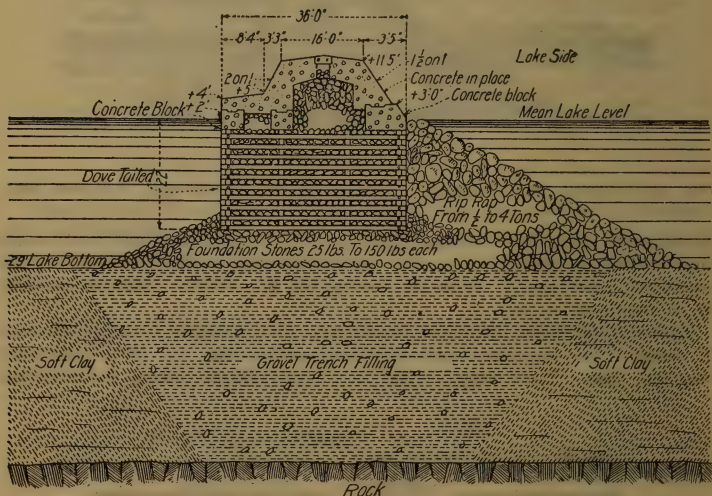 36'0"
8'4" 3'3" 16'0" 3'5"
+11.5' 1½ on 1
Lake Side
2 on 1
+5
Concrete in place
+4'
+3'0" Concrete block
Concrete Block
+2'
Mean Lake Level
Dove Tailed
Rip Rap
From ½ to 4 Tons
Foundation Stones 25 lbs. To 150 lbs each
-29' Lake Bottom
Soft Clay
Gravel Trench Filling
Soft Clay
Rock